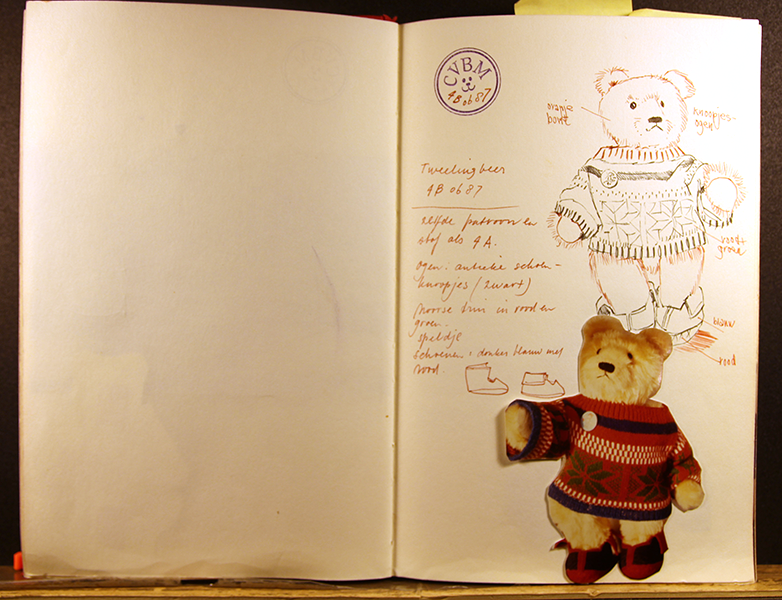 CVBM
4B ob 87
oranje
bont
knoopjes-
ogen
Tweelingbeer
4B ob 87
zelfde patroon en
stof als 4A.
ogen: antieke schoen-
knoopjes (zwart)
Noorse trui in rood en
groen.
speldje
schoenen: donker blauw met
rood.
rood +
groen
blauw
rood